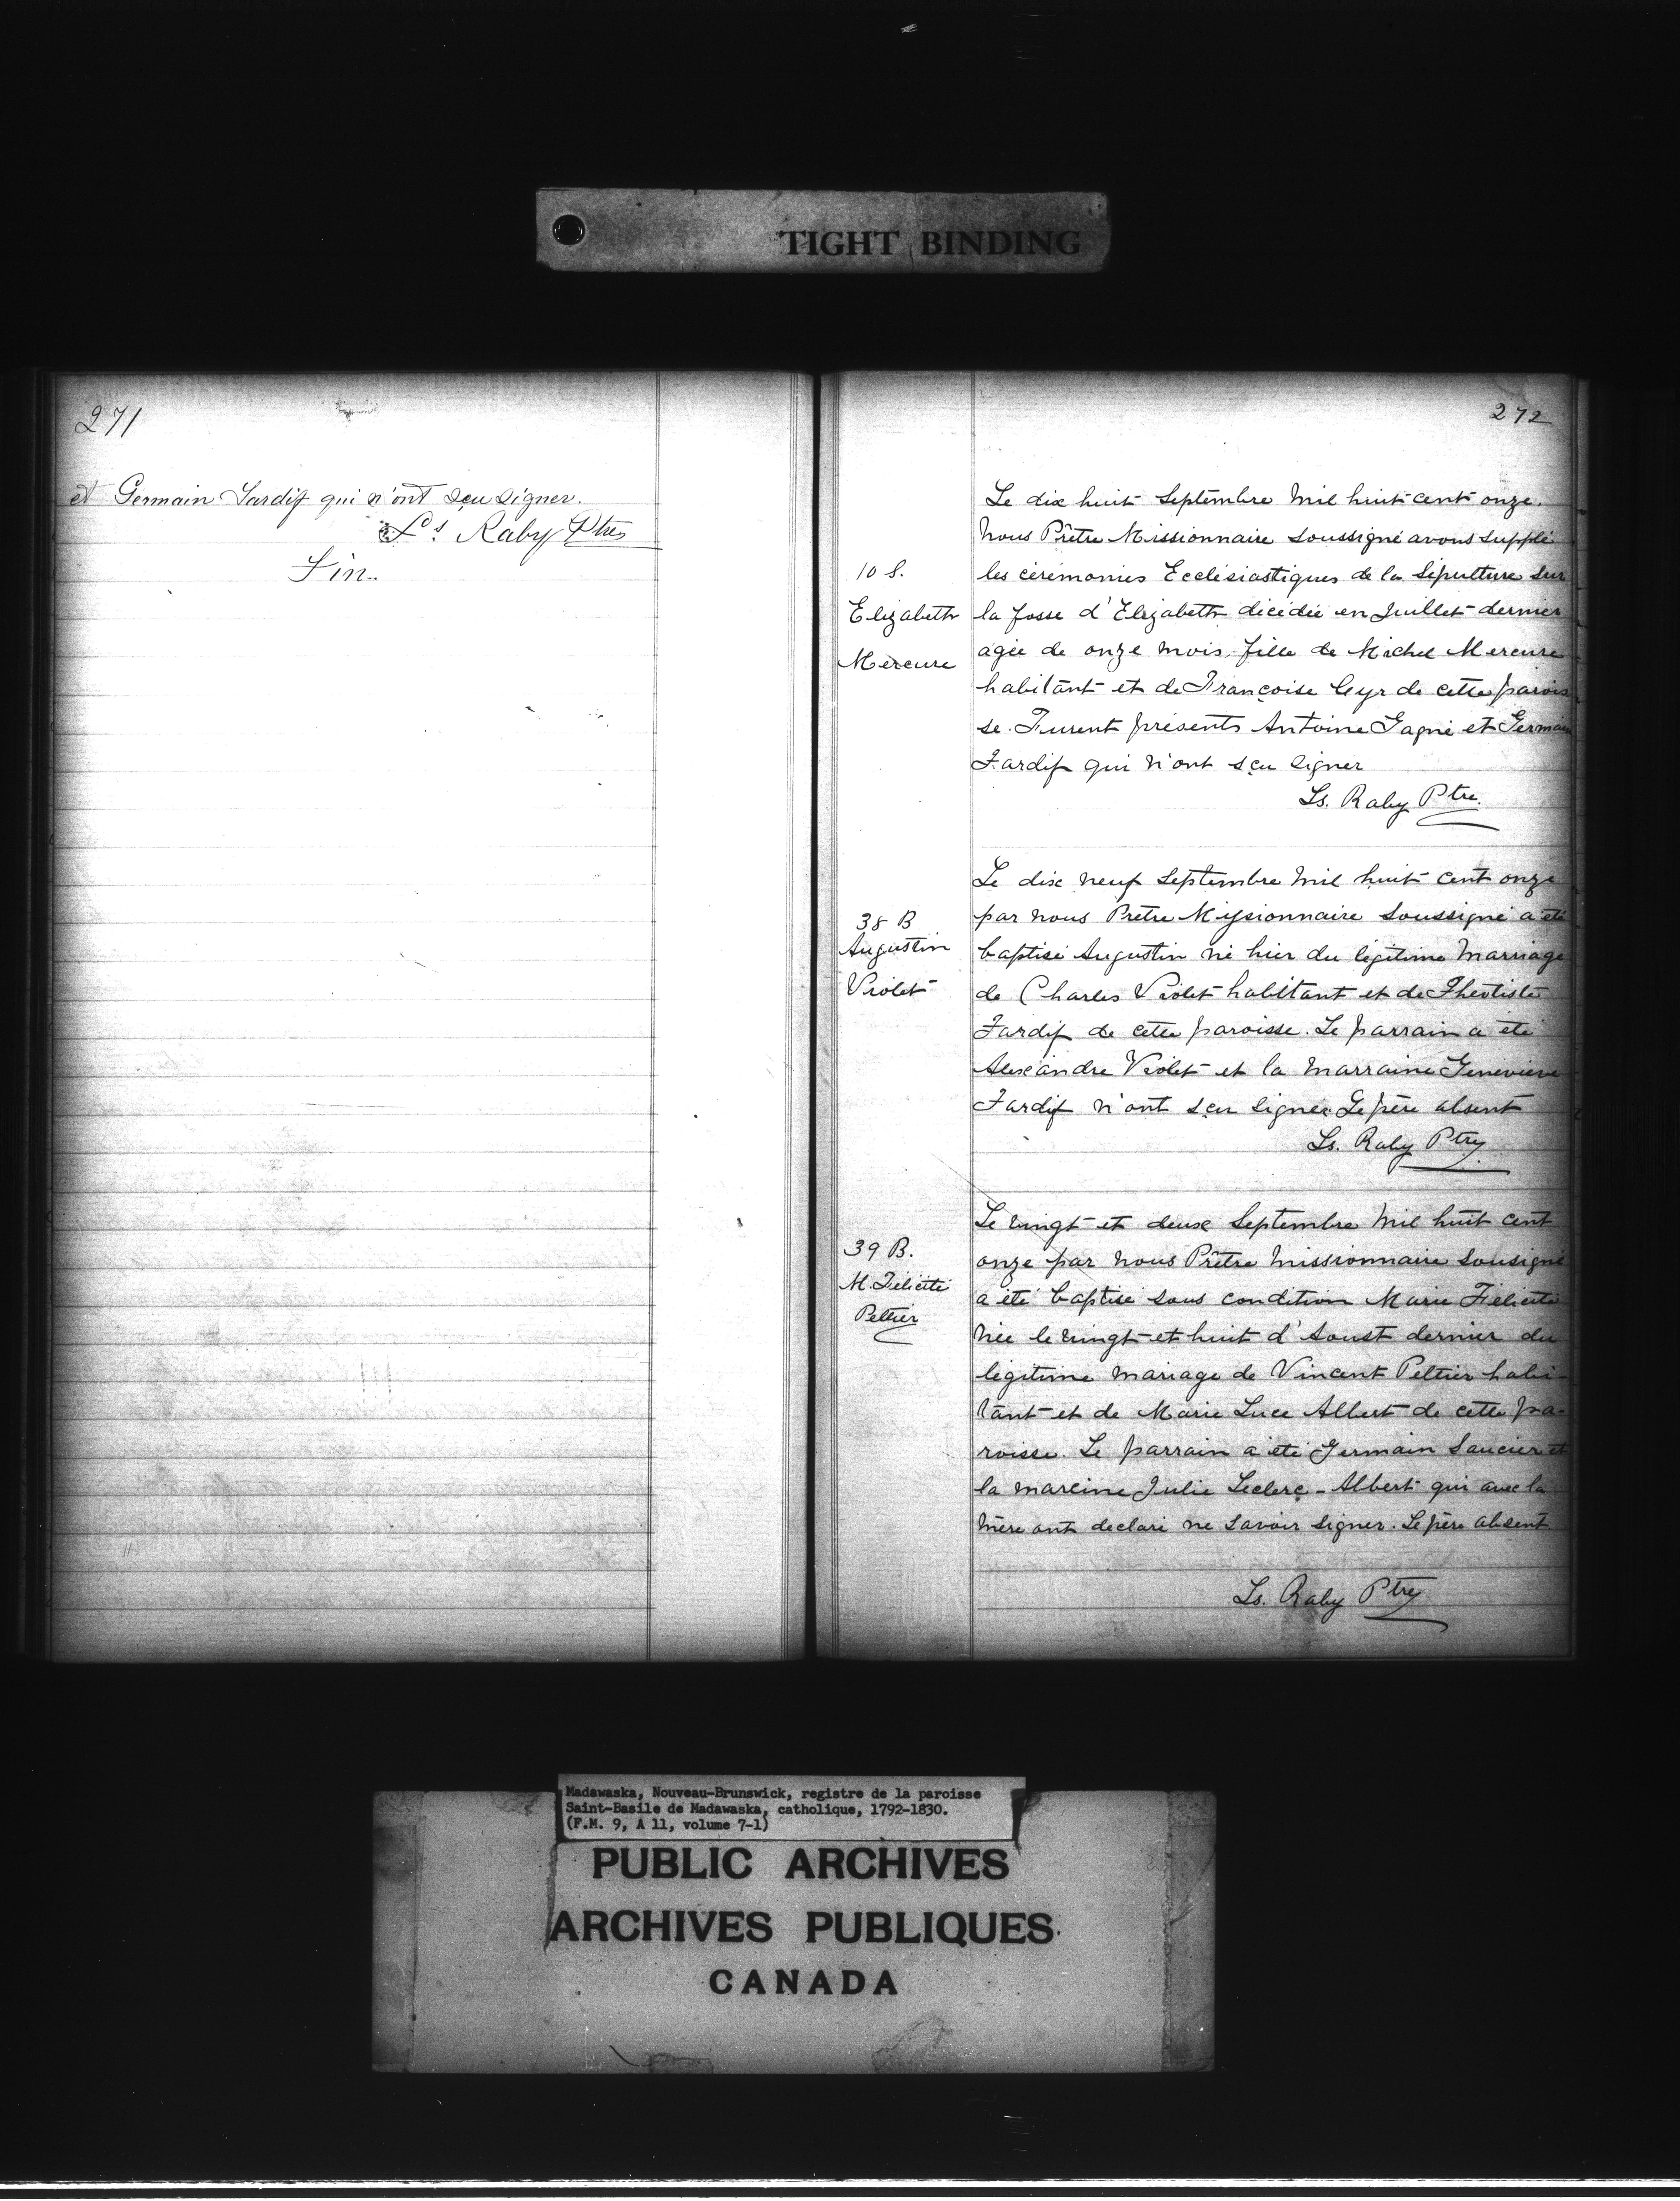 TIGHT BINDING
271
et Germain Tardif qui n'ont sçu signer.
Ls Raby Ptre
Fin.
272
Le dix huit Septembre mil huit cent onze.
Nous Prêtre Missionnaire soussigné avons supplé
10 S.
les cérémonies Ecclésiastiques de la Sépulture sur
Elizabeth
la fosse d'Elizabeth décédée en Juillet dernier
Mercure
agée de onze mois, fille de Michel Mercure
habitant et de Françoise Cyr de cette parois
se. Furent présents Antoine Gagné et Germain
Tardif qui n'ont sçu signer
Ls. Raby Ptre.
Le dix neuf Septembre mil huit cent onze
38 B
par nous Prêtre Missionnaire soussigné a été
Augustin
baptisé Augustin né hier du légitime marriage
Violet
de Charles Violet habitant et de Théotiste
Tardif de cette paroisse. Le parrain a été
Alexandre Violet et la marraine Genevieve
Tardif n'ont sçu signer. Le père absent
Ls. Raby Ptre
Le vingt et deux Septembre mil huit cent
39 B.
onze par nous Prêtre missionnaire sousigné
M. Félicité
a été baptisé sous condition Marie Félicité
Peltier
née le vingt et huit d'Aoust dernier du
légitime mariage de Vincent Peltier habi-
tant et de Marie Luce Albert de cette pa-
roisse. Le parrain a été Germain Saucier et
la mareine Julie Leclerc-Albert qui avec la
mère ont declaré ne savoir signer. Le père absent
Ls. Raby Ptre
Madawaska, Nouveau-Brunswick, registre de la paroisse
Saint-Basile de Madawaska, catholique, 1792-1830.
(F.M. 9, A 11, volume 7-1)
PUBLIC ARCHIVES
ARCHIVES PUBLIQUES
CANADA